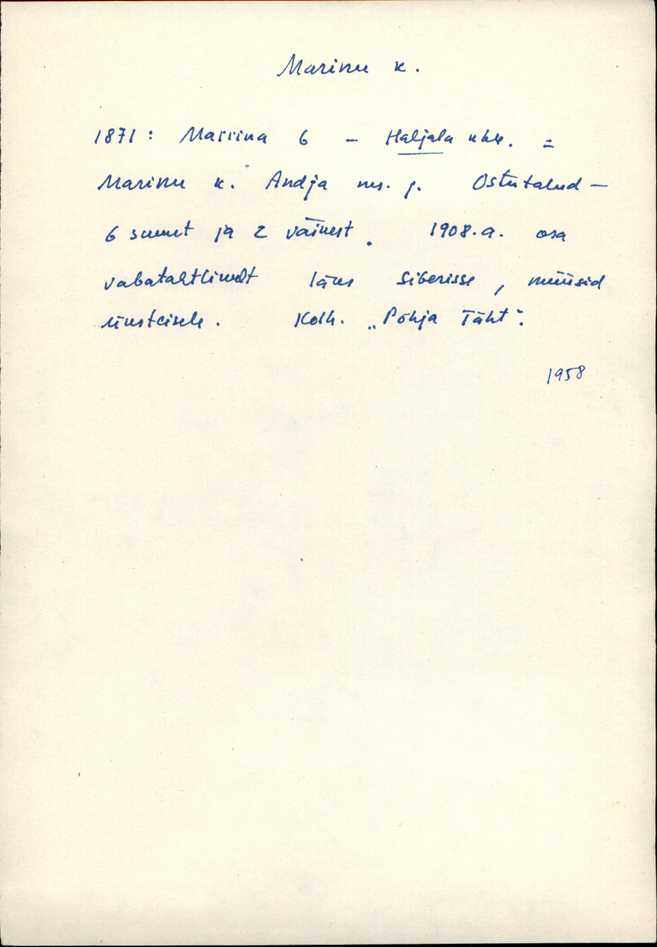 Marinu k.
1871: Mariina 6 - Haljala khk. =
Marinu k. Andja ms. j. Ostutalud -
6 suurt ja 2 väikest. 1908.a. osa
vabatahtlikult läks Siberisse, müüsid
teisele. Kolh. „Põhja Täht".
1958